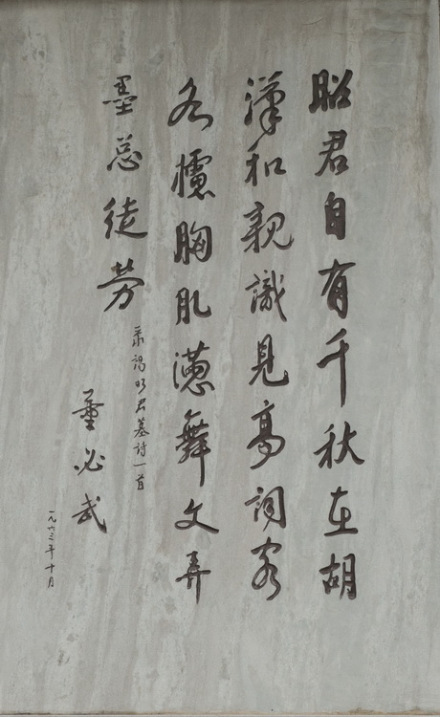 昭君自有千秋在胡
漢和親識見高詞客
各攄胸肊懣舞文弄
墨总徒劳
謁昭君墓詩一首
董必武
一九六三年十月